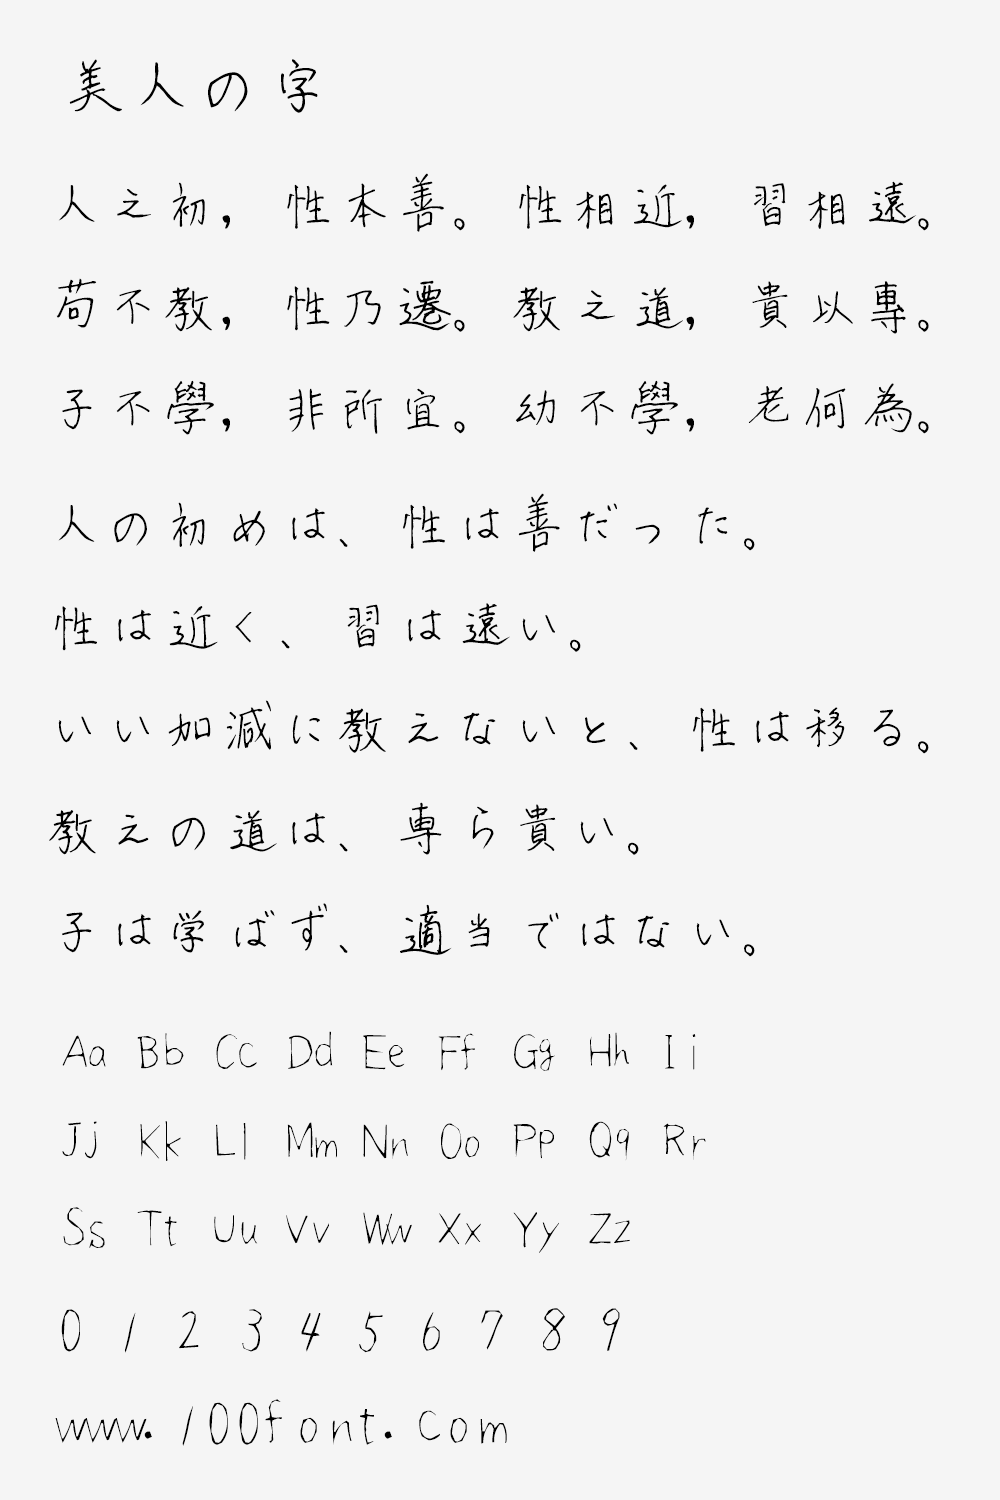 美人の字
人之初，性本善。性相近，習相遠。
苟不教，性乃遷。教之道，貴以專。
子不學，非所宜。幼不學，老何為。
人の初めは、性は善だった。
性は近く、習は遠い。
いい加減に教えないと、性は移る。
教えの道は、専ら貴い。
子は学ばず、適当ではない。
Aa Bb Cc Dd Ee Ff Gg Hh Ii
Jj Kk Ll Mm Nn Oo Pp Qq Rr
Ss Tt Uu Vv Ww Xx Yy Zz
0 1 2 3 4 5 6 7 8 9
www.100font.com